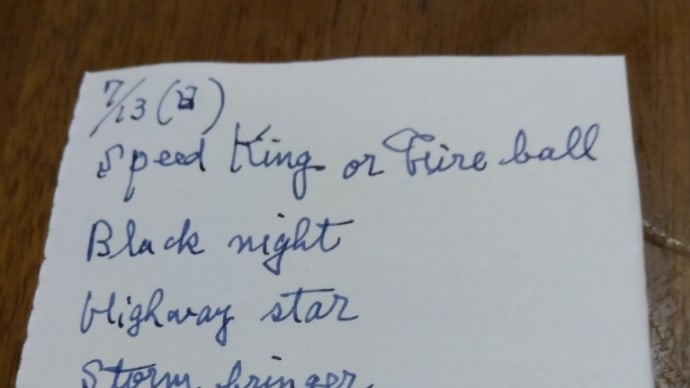 7/13(日)
Speed King or Fire ball
Black night
Highway star
Storm bringer